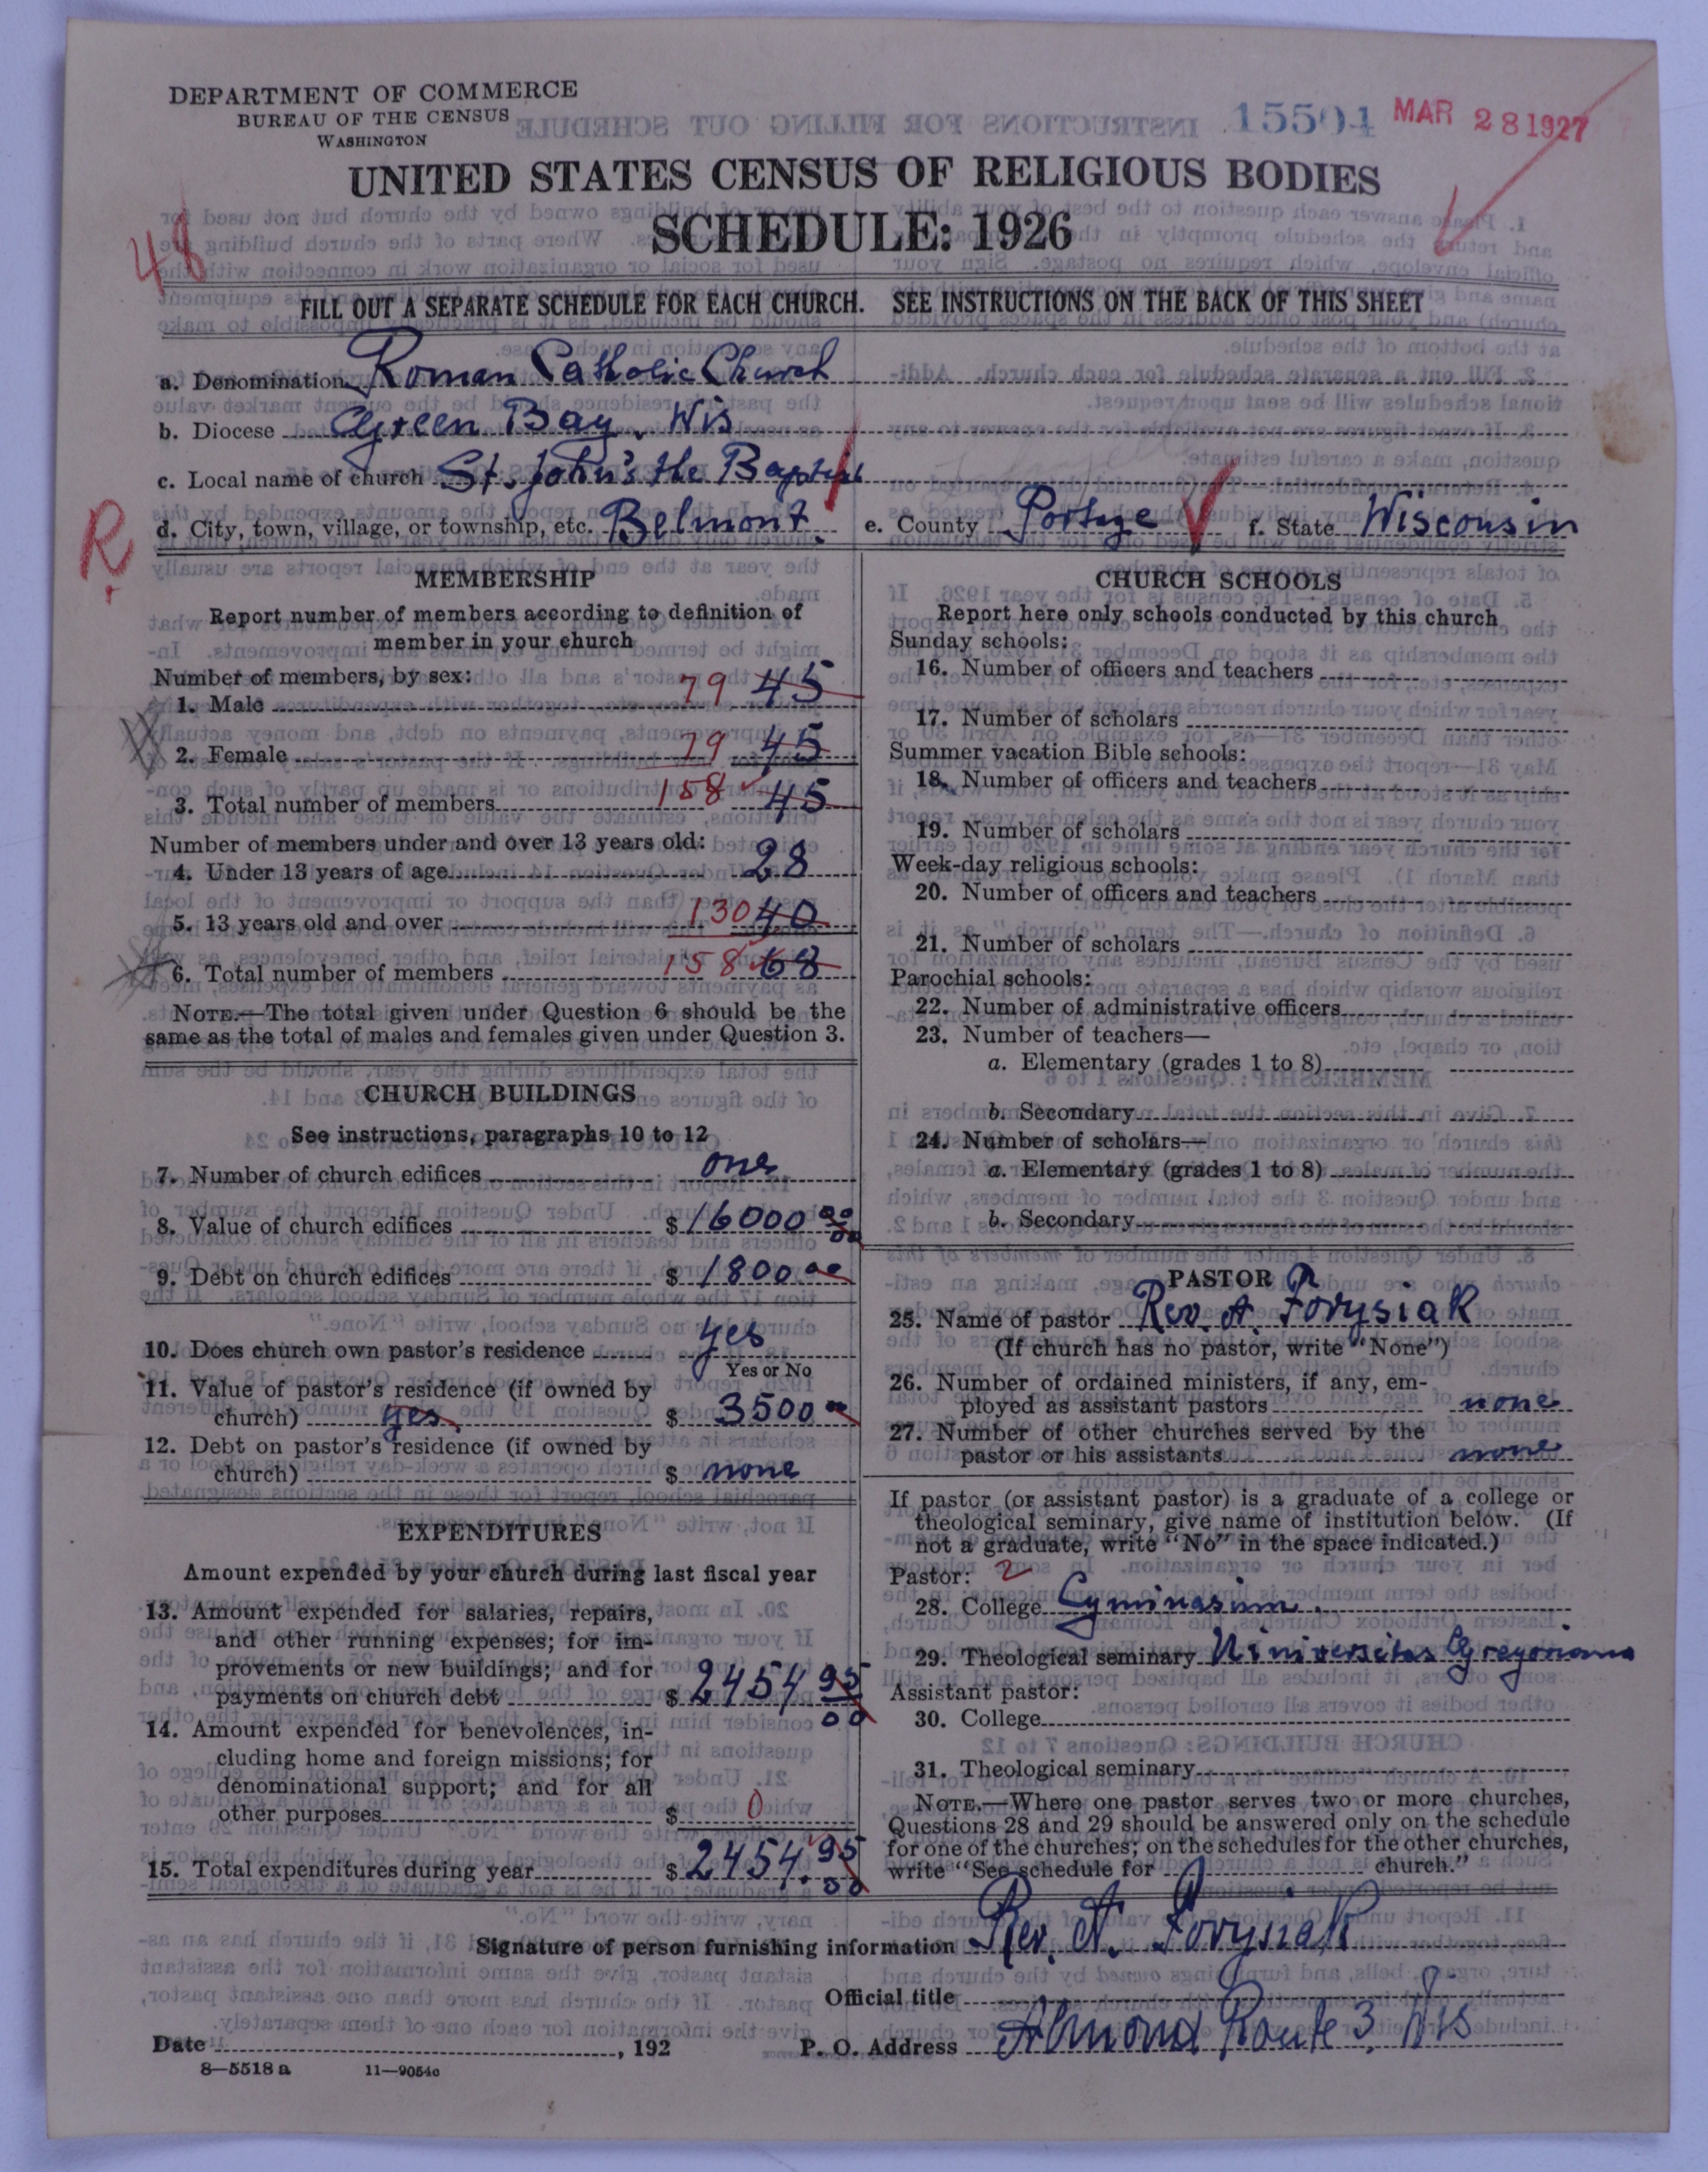 DEPARTMENT OF COMMERCE
BUREAU OF THE CENSUS
WASHINGTON
15504 MAR 28 1927
UNITED STATES CENSUS OF RELIGIOUS BODIES
SCHEDULE: 1926
48
FILL OUT A SEPARATE SCHEDULE FOR EACH CHURCH. SEE INSTRUCTIONS ON THE BACK OF THIS SHEET
a. Denomination Roman Catholic Church
b. Diocese Green Bay, Wis
c. Local name of church St. John's the Baptist
d. City, town, village, or township, etc. Belmont. e. County Portage f. State Wisconsin
R
MEMBERSHIP
Report number of members according to definition of
member in your church
Number of members, by sex:
1. Male 79 45
2. Female 79 45
3. Total number of members 158 45
Number of members under and over 13 years old:
4. Under 13 years of age 28
5. 13 years old and over 130 40
6. Total number of members 158 68
NOTE.—The total given under Question 6 should be the
same as the total of males and females given under Question 3.
CHURCH BUILDINGS
See instructions, paragraphs 10 to 12
7. Number of church edifices one
8. Value of church edifices $16000 00
00
9. Debt on church edifices $ 1800 00
10. Does church own pastor's residence yes
Yes or No
11. Value of pastor's residence (if owned by
church) yes $ 3500 00
12. Debt on pastor's residence (if owned by
church) $ none
EXPENDITURES
Amount expended by your church during last fiscal year
13. Amount expended for salaries, repairs,
and other running expenses; for im-
provements or new buildings; and for
payments on church debt $ 2454 95
00
14. Amount expended for benevolences, in-
cluding home and foreign missions; for
denominational support; and for all
other purposes $ 0
15. Total expenditures during year $ 2454.95
00
CHURCH SCHOOLS
Report here only schools conducted by this church
Sunday schools:
16. Number of officers and teachers
17. Number of scholars
Summer vacation Bible schools:
18. Number of officers and teachers
19. Number of scholars
Week-day religious schools:
20. Number of officers and teachers
21. Number of scholars
Parochial schools:
22. Number of administrative officers
23. Number of teachers—
a. Elementary (grades 1 to 8)
b. Secondary
24. Number of scholars—
a. Elementary (grades 1 to 8)
b. Secondary
PASTOR
25. Name of pastor Rev. A. Forysiak
(If church has no pastor, write "None")
26. Number of ordained ministers, if any, em-
ployed as assistant pastors none
27. Number of other churches served by the
pastor or his assistants none
If pastor (or assistant pastor) is a graduate of a college or
theological seminary, give name of institution below. (If
not a graduate, write "No" in the space indicated.)
Pastor: 2
28. College Gyminasium.
29. Theological seminary Universitas Gregoriana
Assistant pastor:
30. College
31. Theological seminary
NOTE.—Where one pastor serves two or more churches,
Questions 28 and 29 should be answered only on the schedule
for one of the churches; on the schedules for the other churches,
write "See schedule for church."
Signature of person furnishing information Rev. A. Forysiak
Official title
Date , 192 P. O. Address Almond Route 3, Wis
8—5518 a 11—9054c